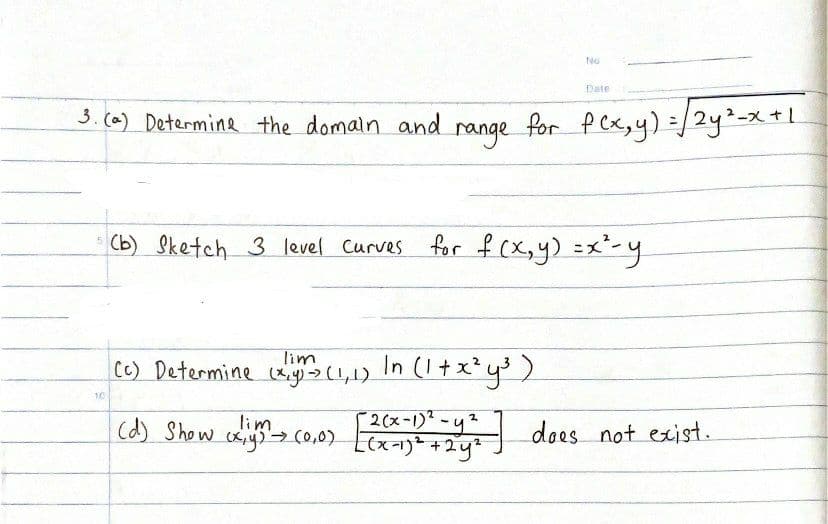 No
Date
3. (a) Determine the domain and range for f(x,y) = √(2y²-x+1)
5 (b) Sketch 3 level curves for f(x,y) = x²-y
(c) Determine lim (x,y)→(1,1) ln (1+x²y³)
10
(d) Show lim (x,y)→(0,0) [2(x-1)²-y² / (x-1)²+2y²] does not exist.